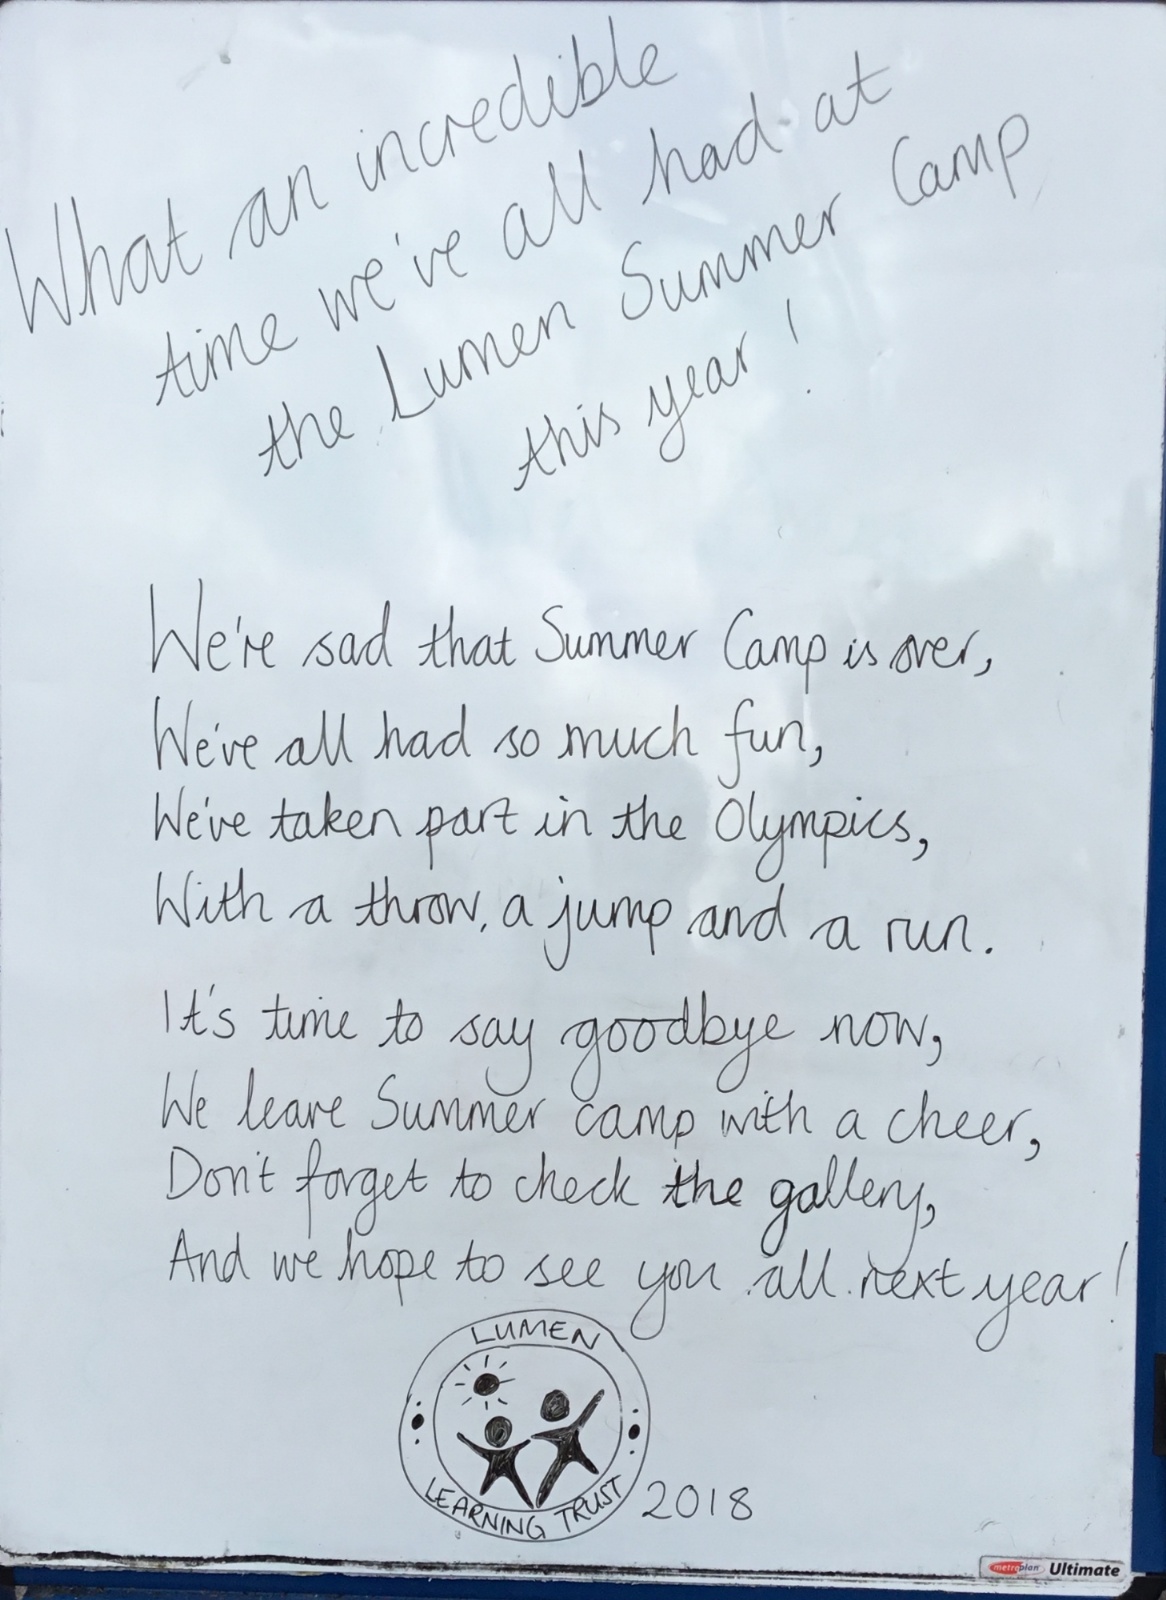 What an incredible
time we've all had at
the Lumen Summer Camp
this year!
We're sad that Summer Camp is over,
We've all had so much fun,
We've taken part in the Olympics,
With a throw, a jump and a run.
It's time to say goodbye now,
We leave Summer camp with a cheer,
Don't forget to check the gallery,
And we hope to see you all next year!
LUMEN
LEARNING TRUST
2018
metroplan Ultimate